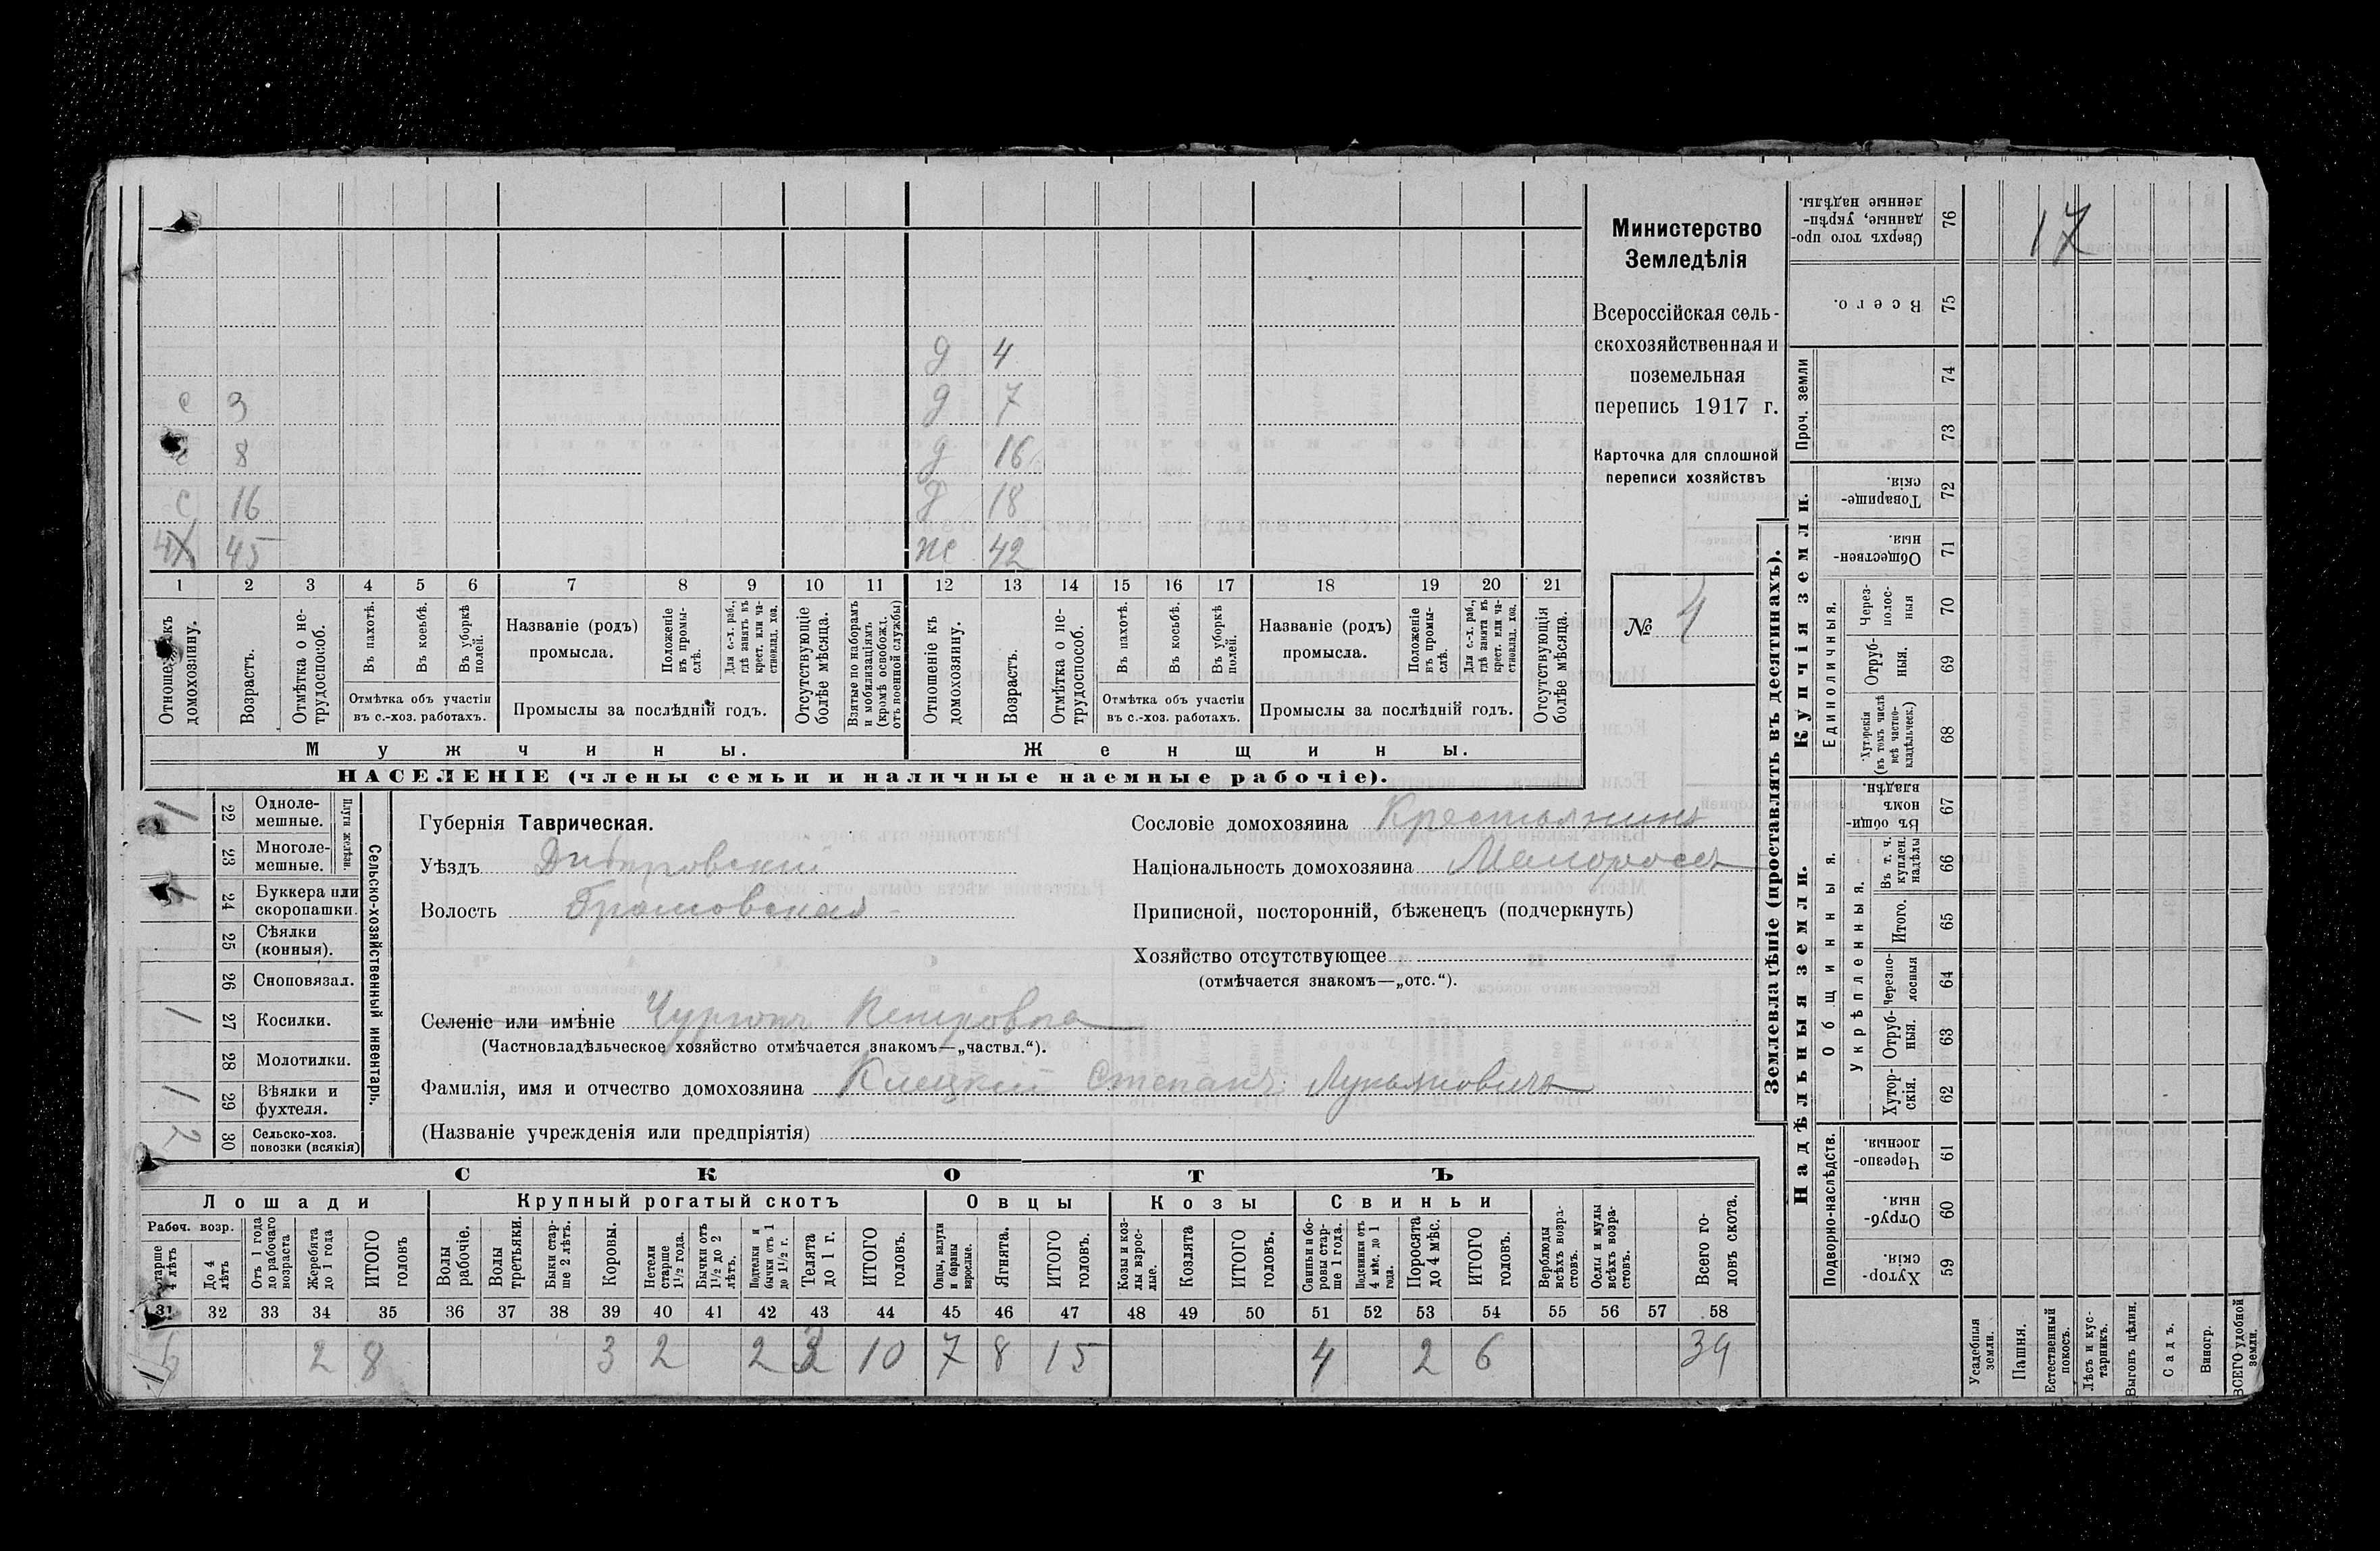 д 4
с 3 д 7
с 8 д 16
с 16 д 18
х 45 ж 42
1 2 3 4 5 6 7 8 9 10 11 12 13 14 15 16 17 18 19 20 21
Отношеніе къ домохозяину.
Возрастъ.
Отмѣтка о нетрудоспособ.
Въ пахотѣ.
Въ косьбѣ.
Въ уборкѣ полей.
Отмѣтка объ участіи въ с.-хоз. работахъ.
Названіе (родъ) промысла.
Положеніе въ промыслѣ.
Для с.-х. раб., гдѣ занятъ въ крест. или частновлад. хоз.
Промыслы за послѣдній годъ.
Отсутствующіе болѣе мѣсяца.
Взятые по наборамъ и мобилизаціямъ (кромѣ освобожд. отъ военной службы)
Отношеніе къ домохозяину.
Возрастъ.
Отмѣтка о нетрудоспособ.
Въ пахотѣ.
Въ косьбѣ.
Въ уборкѣ полей.
Отмѣтка объ участіи въ с.-хоз. работахъ.
Названіе (родъ) промысла.
Положеніе въ промыслѣ.
Для с.-х. раб., гдѣ занята въ крест. или частновлад. хоз.
Промыслы за послѣдній годъ.
Отсутствующія болѣе мѣсяца.
Мужчины. Женщины.
НАСЕЛЕНІЕ (члены семьи и наличные наемные рабочіе).
Министерство
Земледѣлія
Всероссійская сель-
скохозяйственная и
поземельная
перепись 1917 г.
Карточка для сплошной
переписи хозяйствъ
№ 4
Сельско-хозяйственный инвентарь.
Плуги желѣзн.
1 22 Одноле-
мешные.
23 Многоле-
мешные.
1 24 Буккера или
скоропашки.
25 Сѣялки
(конныя).
26 Сноповязал.
1 27 Косилки.
28 Молотилки.
1 29 Вѣялки и
фухтеля.
2 30 Сельско-хоз.
повозки (всякія)
Губернія Таврическая.
Уѣздъ Днѣпровскій
Волость Громовская
Сословіе домохозяина Крестьянинъ
Національность домохозяина Малороссъ
Приписной, посторонній, бѣженецъ (подчеркнуть)
Хозяйство отсутствующее
(отмѣчается знакомъ—„отс.“).
Селеніе или имѣніе Чургунъ Петровка
(Частновладѣльческое хозяйство отмѣчается знакомъ—„частвл.“).
Фамилія, имя и отчество домохозяина Клецкій Степанъ Лукьяновичъ
(Названіе учрежденія или предпріятія)
СКОТЪ
Лошади Крупный рогатый скотъ Овцы Козы Свиньи
Рабоч. возр.
Старше 4 лѣтъ
До 4 лѣтъ
Отъ 1 года до рабочаго возраста
Жеребята до 1 года
ИТОГО головъ
Волы рабочіе.
Волы третьяки.
Быки старше 2 лѣтъ.
Коровы.
Нетели старше 1½ года.
Бычки отъ 1½ до 2 лѣтъ.
Подтелки и бычки отъ 1 до 1½ г.
Телята до 1 г.
ИТОГО головъ.
Овцы, валухи и бараны взрослые.
Ягнята.
ИТОГО головъ.
Козы и козлы взрослые.
Козлята
ИТОГО головъ.
Свиньи и боровы старше 1 года.
Подсвинки отъ 4 мѣс. до 1 года.
Поросята до 4 мѣс.
ИТОГО головъ.
Верблюды всѣхъ возрастовъ.
Ослы и мулы всѣхъ возрастовъ.
Всего головъ скота.
31 32 33 34 35 36 37 38 39 40 41 42 43 44 45 46 47 48 49 50 51 52 53 54 55 56 57 58
2 8 3 2 2 3 10 7 8 15 4 2 6 39
Землевладѣніе (проставлять въ десятинахъ).
Купчія земли.
Надѣльныя земли.
Сверхъ того проданные, укрѣпленные надѣлы. 76
17
Всего. 75
Проч. земли 74
73
Товарищескія. 72
Общественныя. 71
Единоличныя.
Черезполосныя 70
Отрубныя. 69
Хуторскія (въ томъ числѣ всѣ частновладѣльческ.) 68
Общинныя.
Въ общинномъ владѣн. 67
Укрѣпленныя.
Въ т. ч. куплен. надѣлы 66
Итого. 65
Черезполосныя 64
Отрубныя. 63
Хуторскія. 62
Подворно-наслѣдств.
Черезполосныя 61
Отрубныя. 60
Хуторскія. 59
Усадебныя земли.
Пашня.
Естественный покосъ.
Лѣсъ и кустарникъ.
Выгонъ цѣлин.
Садъ.
Виногр.
ВСЕГО удобной земли.